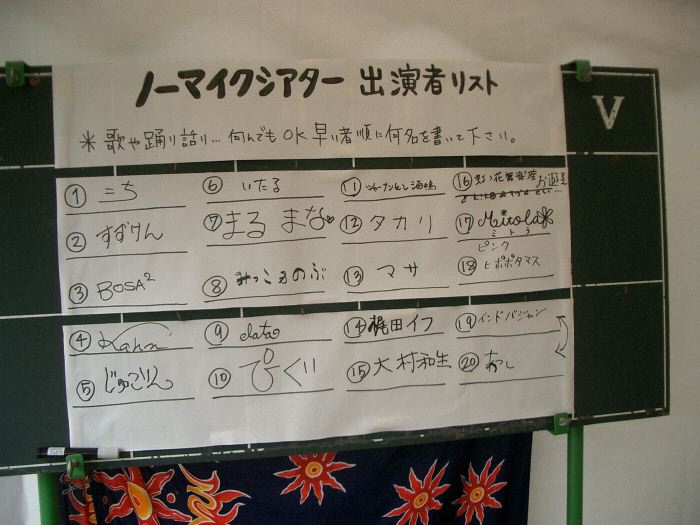 ノーマイクシアター 出演者リスト
V
※ 歌や踊り話り… 何んでもOK 早い者順に何名を書いて下さい。
① こち
② すずけん
③ BOSA²
④ Kahn
⑤ じゅごん
⑥ いたる
⑦ まる まな
⑧ みっこ のぶ
⑨ data
⑩ ぴぐい
⑪ 海鳴
⑫ タカリ
⑬ マサ
⑭ 梶田イフ
⑮ 大村和生
⑯ 虹の花 お遊戯
⑰ Mitola
ミトラ
ピンク
⑱ ヒポポタマス
⑲ インドパジャン
⑳ あつし